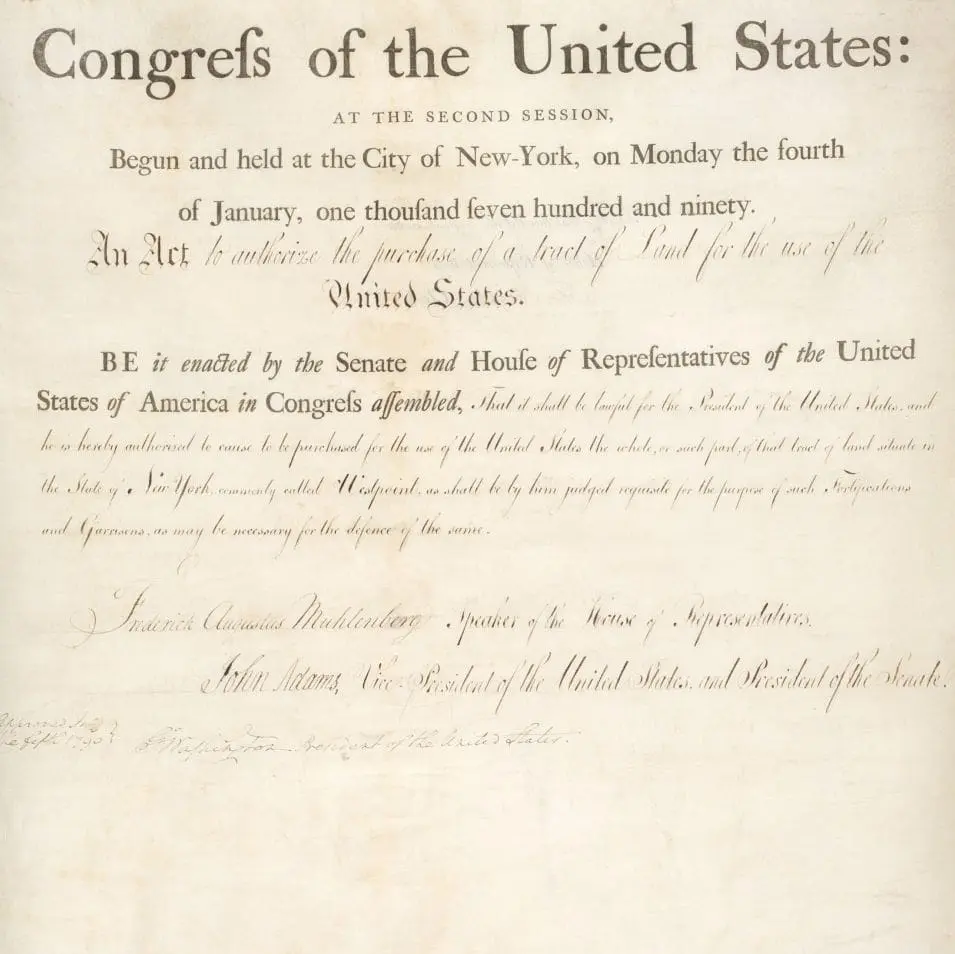 Congreſs of the United States:
AT THE SECOND SESSION,
Begun and held at the City of New-York, on Monday the fourth
of January, one thouſand ſeven hundred and ninety.
An Act to authorize the purchase of a tract of Land for the use of the
United States.
BE it enacted by the Senate and Houſe of Repreſentatives of the United
States of America in Congreſs aſſembled, That it shall be lawful for the President of the United States, and
he is hereby authorised to cause to be purchased for the use of the United States the whole, or such part, of that tract of land situate in
the State of New York, commonly called Westpoint, as shall be by him judged requisite for the purpose of such Fortifications
and Garrisons, as may be necessary for the defence of the same.
Frederick Augustus Muhlenberg Speaker of the House of Representatives.
John Adams, Vice-President of the United States, and President of the Senate.
approved July
the fifth 1790
Go Washington President of the United States.